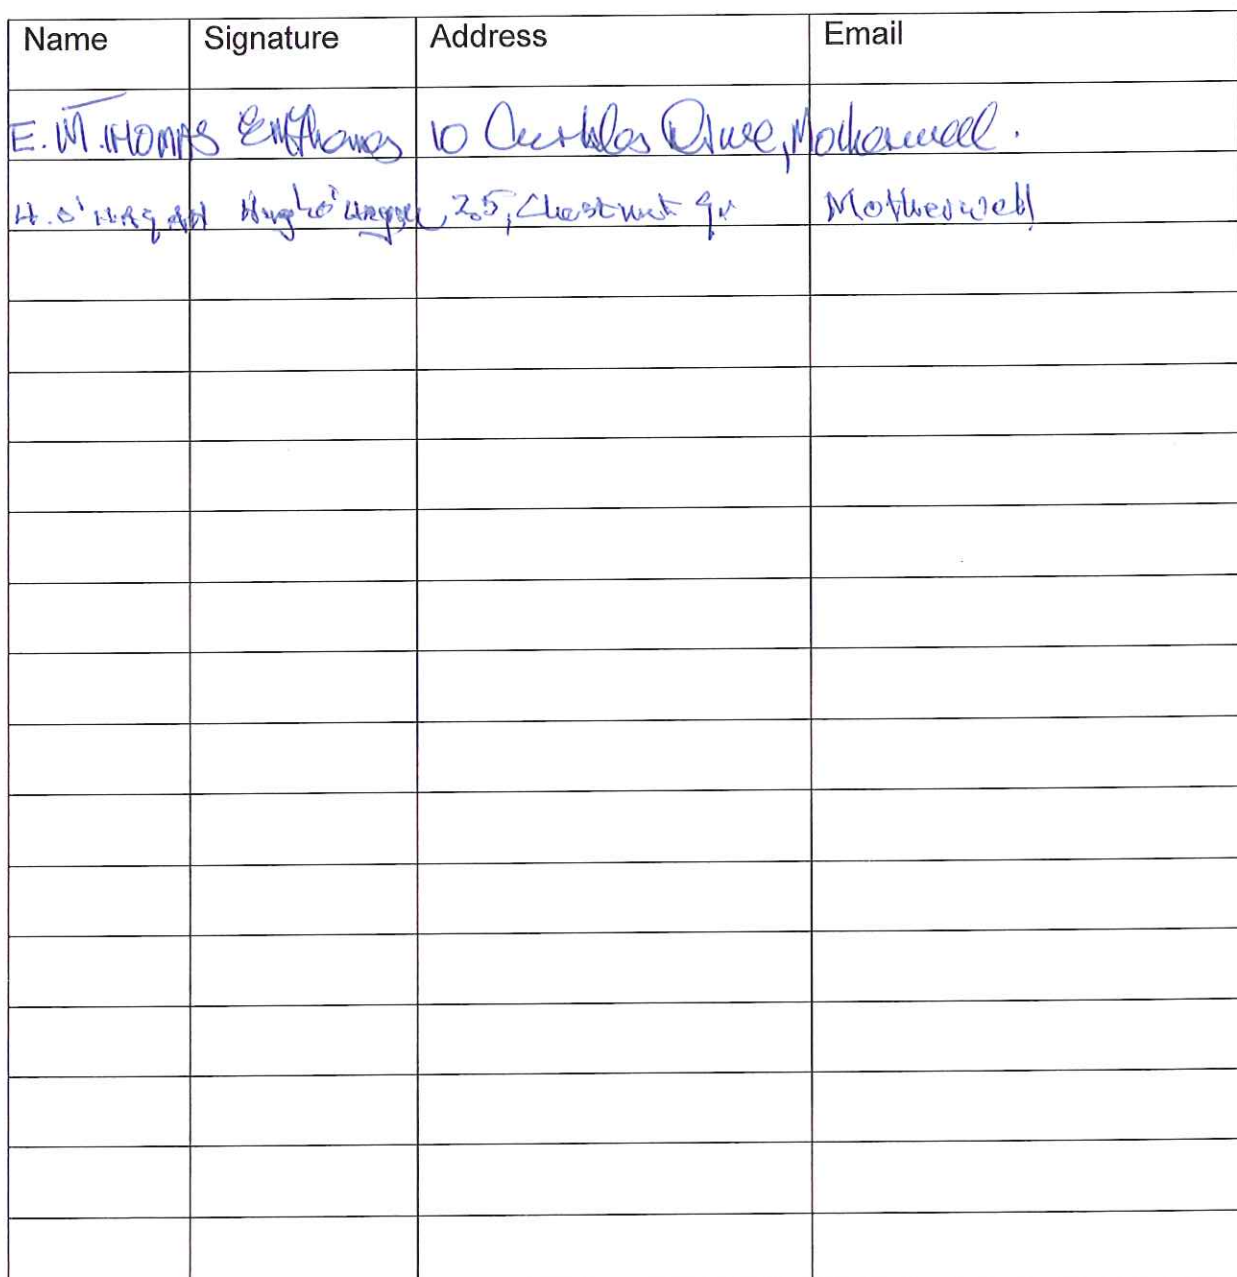 Name Signature Address Email
E. M. THOMAS EMThomas 10 Drive, Motherwell.
H. O'HAGAN Hugh O'Hagan, 25, Chestnut gr Motherwell